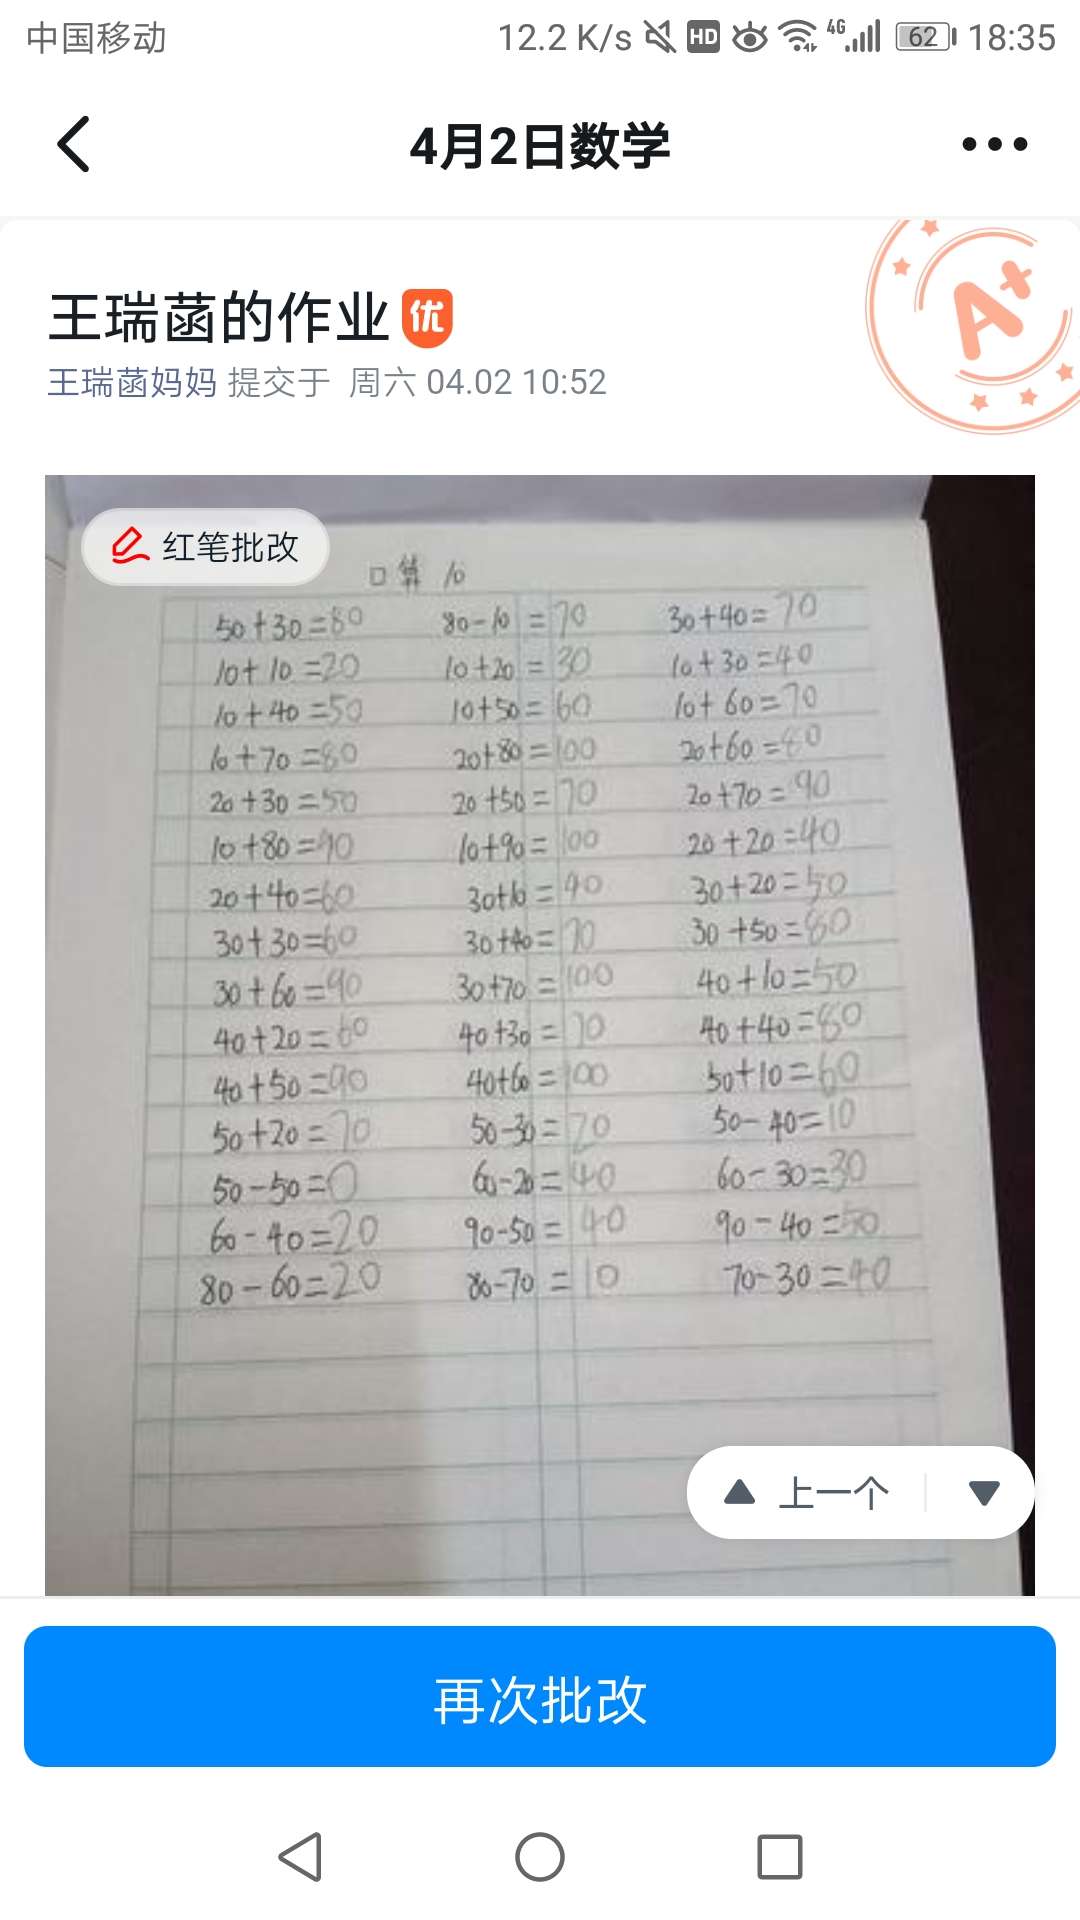 中国移动 12.2 K/s HD 4G 62 18:35
4月2日数学
A+
王瑞菡的作业 优
王瑞菡妈妈 提交于 周六 04.02 10:52
红笔批改
口算 10
50+30=80 80-10=70 30+40=70
10+10=20 10+20=30 10+30=40
10+40=50 10+50=60 10+60=70
10+70=80 20+80=100 20+60=80
20+30=50 20+50=70 20+70=90
10+80=90 10+90=100 20+20=40
20+40=60 30+10=40 30+20=50
30+30=60 30+40=70 30+50=80
30+60=90 30+70=100 40+10=50
40+20=60 40+30=70 40+40=80
40+50=90 40+60=100 50+10=60
50+20=70 50-30=20 50-40=10
50-50=0 60-20=40 60-30=30
60-40=20 90-50=40 90-40=50
80-60=20 80-70=10 70-30=40
上一个
再次批改